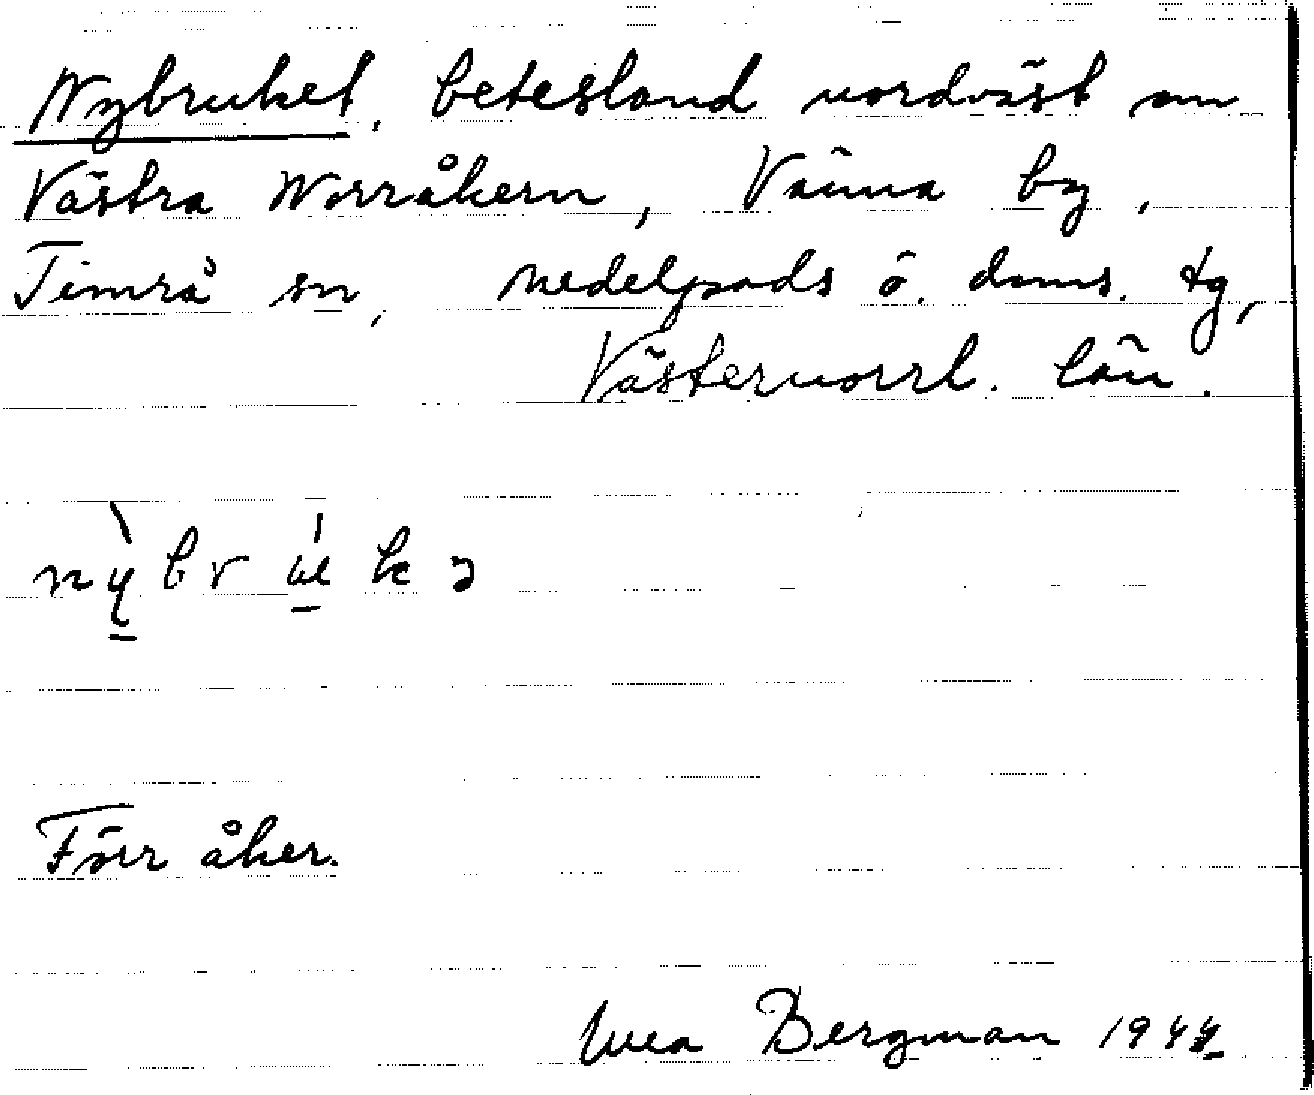 Nybruket, betesland nordväst om
Västra Norråkern, Vänna by,
Timrå sn, Medelpads ö. doms. tg,
Västernorrl. län.
Förr åker.
Bergman 1944